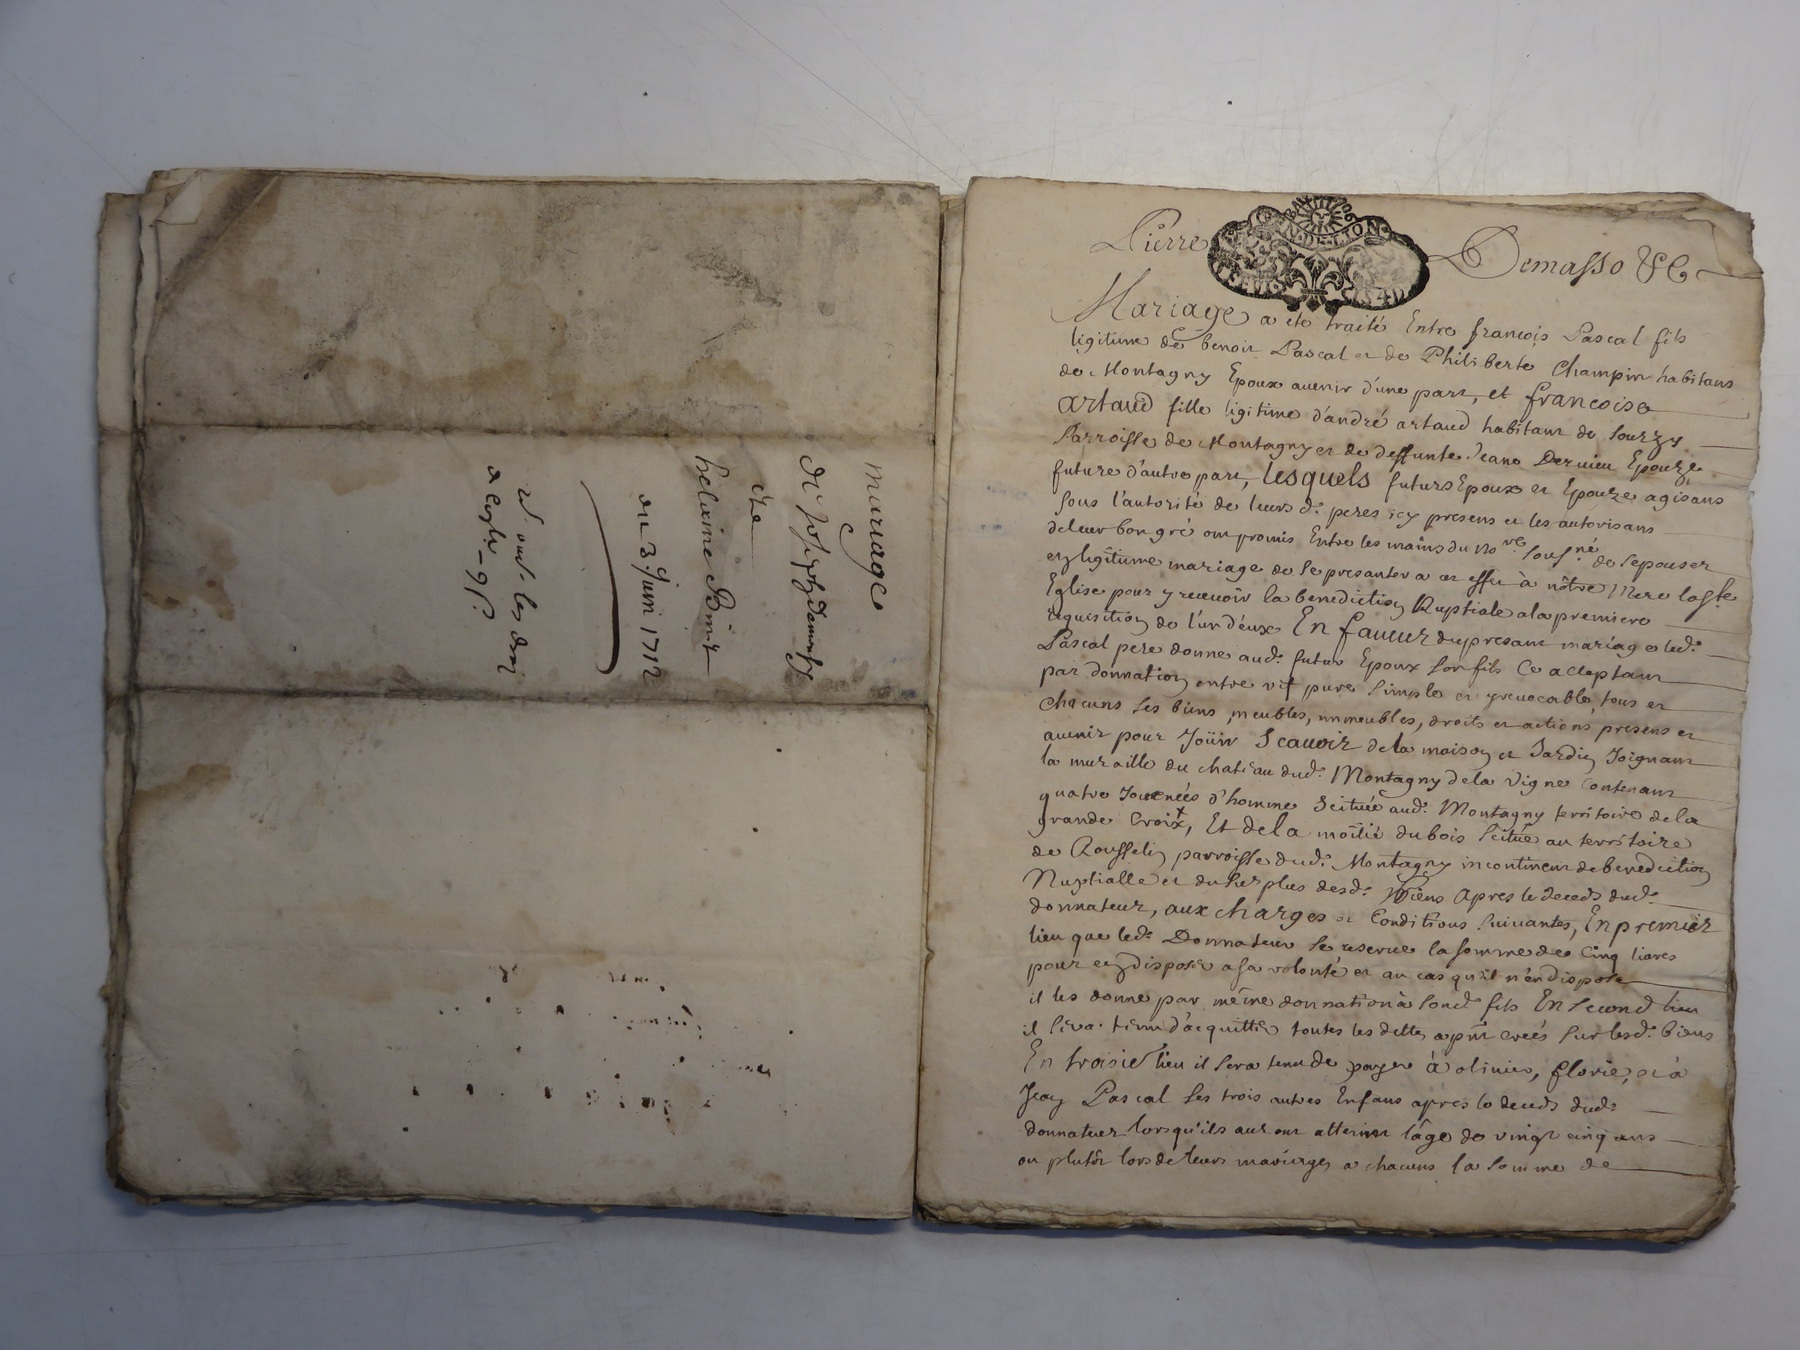 mariage
de
et
helleine
du 3.e Juin 1712
Pierre Demasso &c
Mariage a ete traité Entre françois Pascal fils
ligitime de benoit Pascal et de Philiberte Champin habitans
de Montagny Epoux auenir d'une part, et francoise
artaud fille ligitime d'andré artaud habitant de Sourzy
Parroisse de Montagny et de deffunte Jeane Dervieu Epouze
future d'autre part, Lesquels futurs Epoux et Epouze agisans
sous l'autorité de leurs d. peres icy presens et les autorisans
de leur bon gré ont promis Entre les mains du no.re sous.né de s'epouser
en ligitime mariage de se presanter a cet effet à nôtre Mere laste
Eglise pour y recevoir la benediction Nuptiale a la premiere
requisition de l'un d'eux En faueur du presant mariage led.
Pascal pere donne aud. futur Epoux son fils Ce acceptant
par donnation entre vif pure simple et yrevocable, tous et
chacuns ses biens, meubles, immeubles, droits et actions presens et
auenir pour Joüir Scauoir de la maison et Jardin Joignant
la muraille du chateau dud. Montagny de la Vigne Contenant
quatre Journées d'homme Scituée aud. Montagny territoire de la
grande Croix, Et de la moitié du bois Scitué au territoire
de Rousselin parroisse dud. Montagny incontinent de benediction
Nuptialle et du surplus desd. Biens Apres le deceds dud.
donnateur, aux charges et Conditions suivantes, En premier
lieu que led. Donnateur se reserve la somme de Cinq livres
pour en disposer a sa volonté et au cas qu'il n'en dispose
il les donne par même donnation à sond. fils En second lieu
il sera tenu d'acquitter toutes les dettes apnt creés sur lesd. biens
En troisie lieu il sera tenu de payer à olinier, florie, et à
Jean Pascal ses trois autres Enfans apres le deceds dud.
donnateur lorsqu'ils auront atteint l'âge de vingt cinq ans
ou plutôt lors de leurs mariages a chacuns la somme de